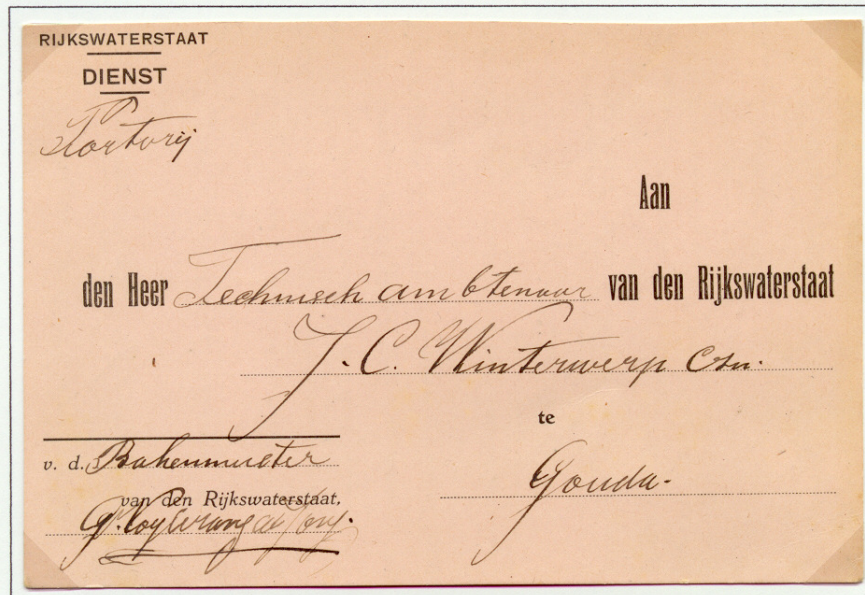 RIJKSWATERSTAAT
DIENST
Portvrij
Aan
den Heer Technisch ambtenaar van den Rijkswaterstaat
J. C. Winterwerp Czn.
te
Gouda.
v. d. Bakenmeester
van den Rijkswaterstaat,